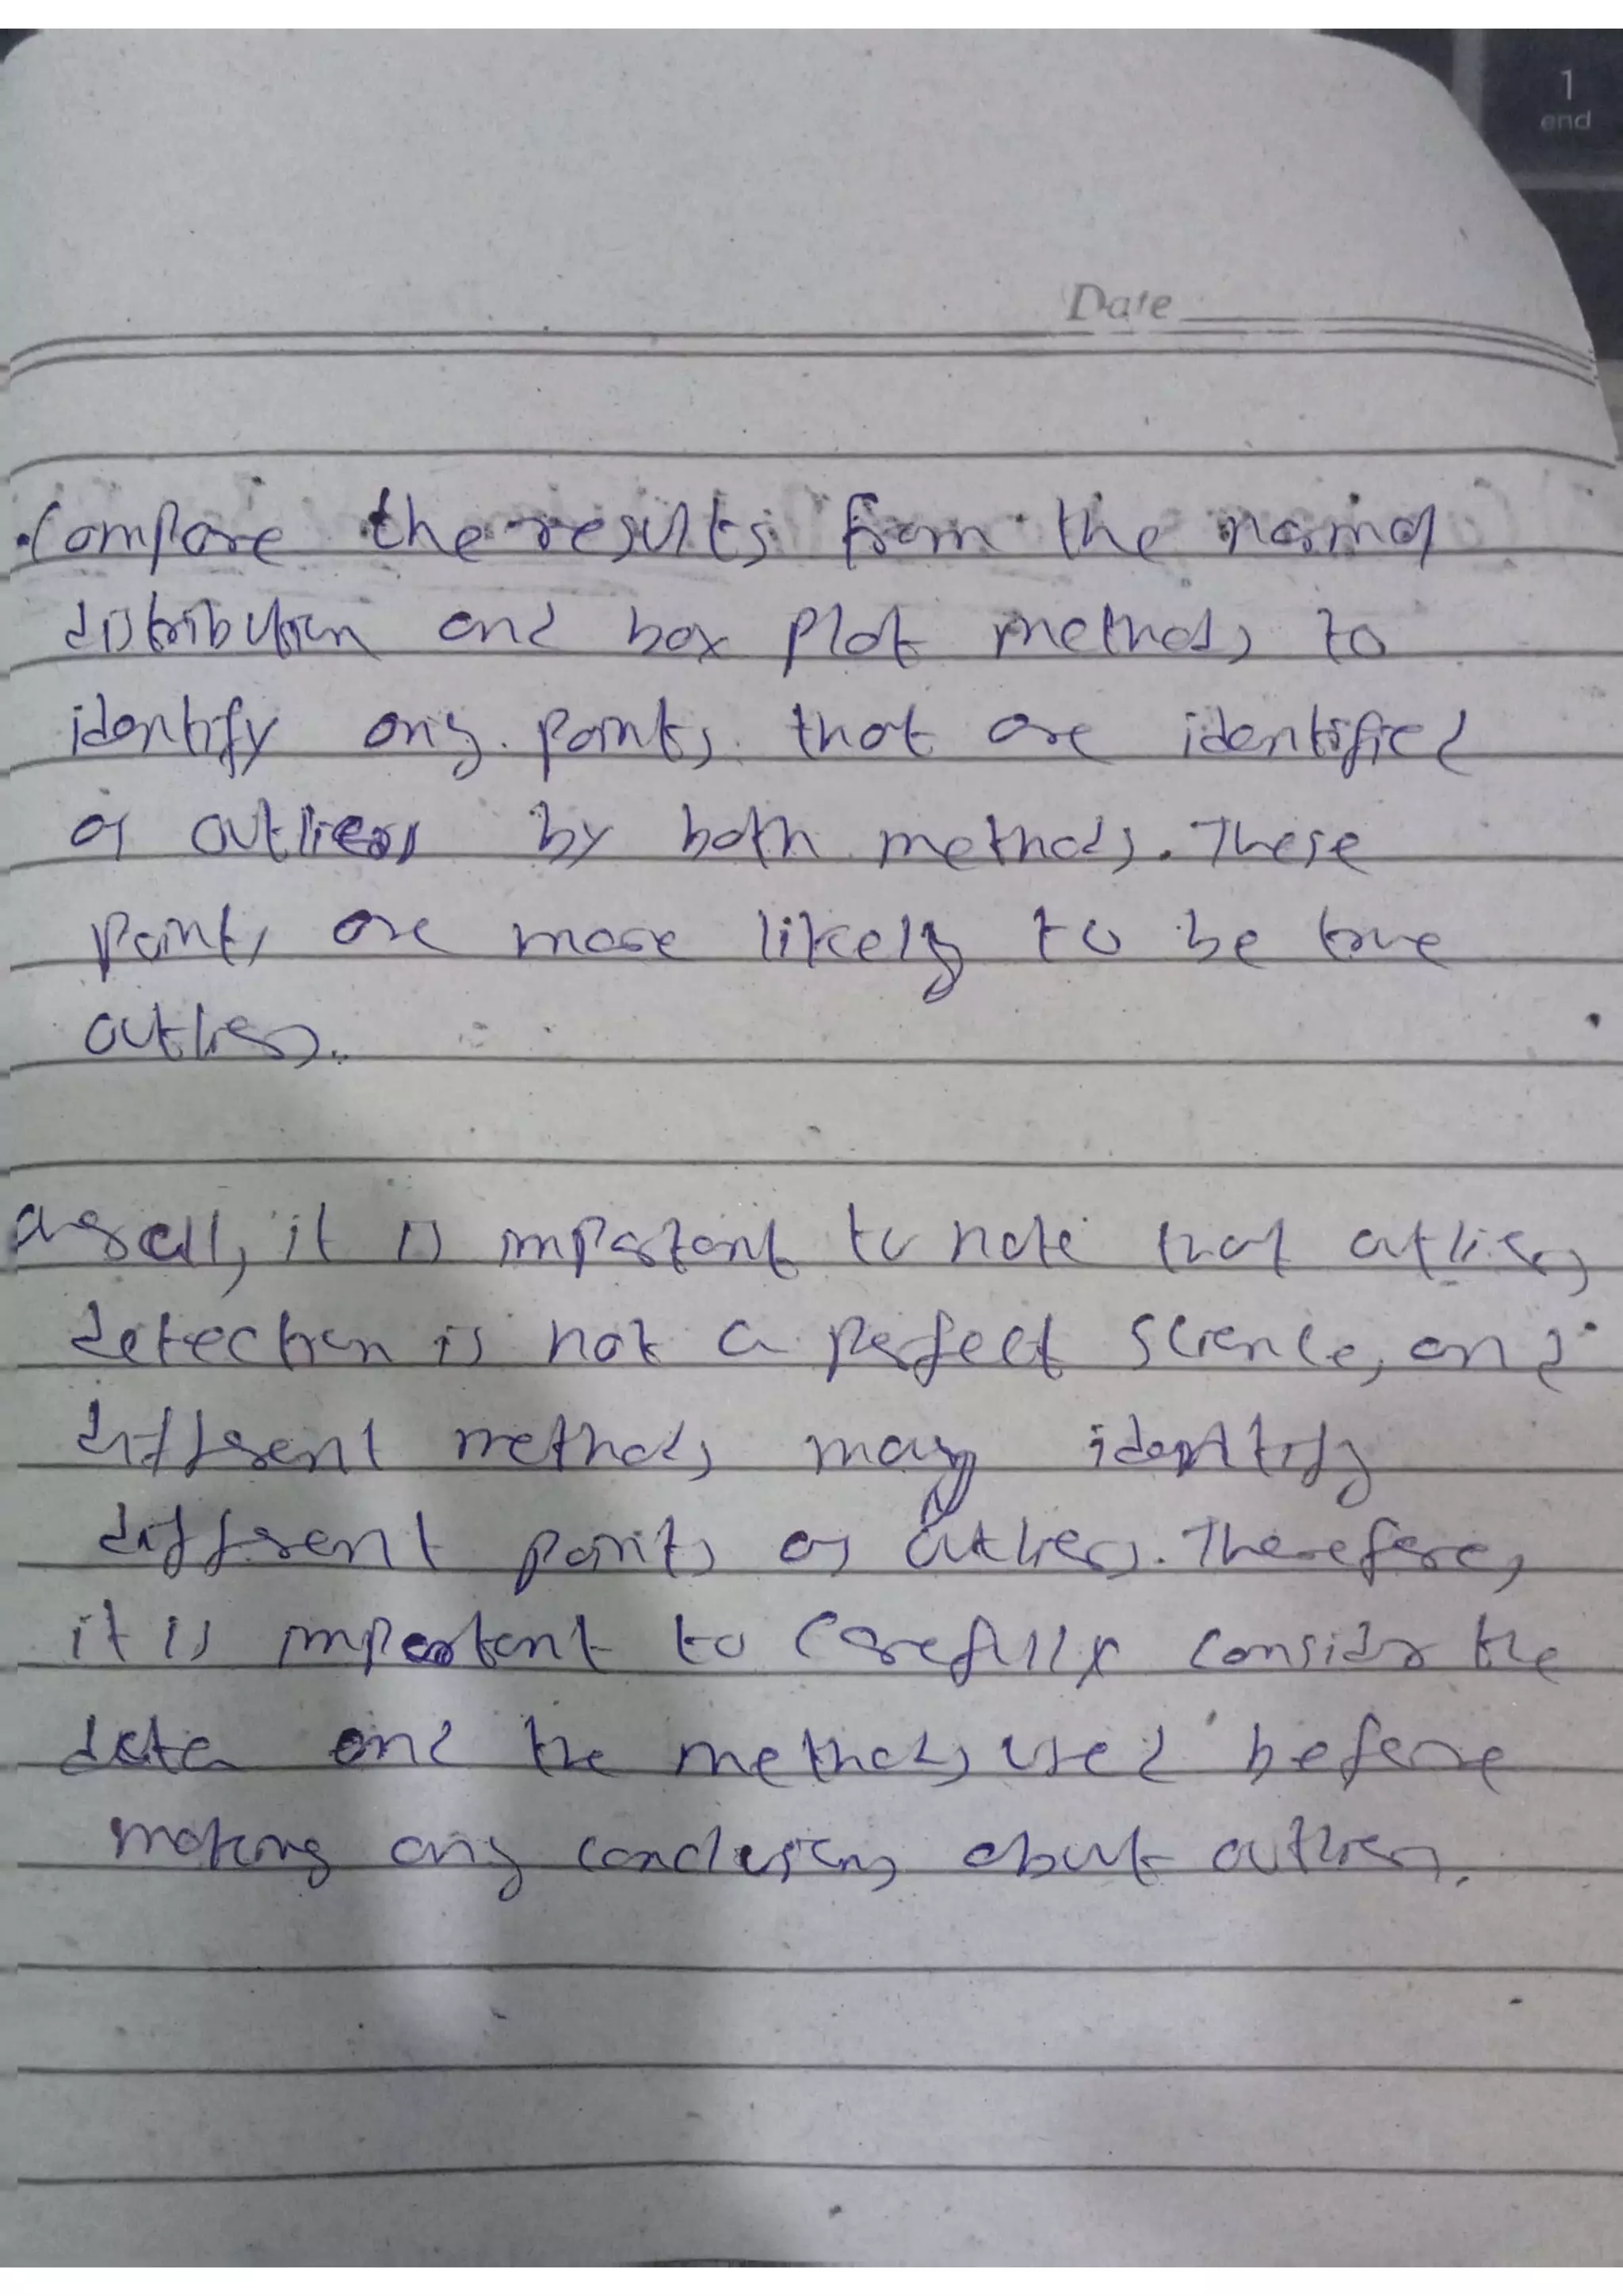 1
end
Date
. Compare the results from the normal
distribution and box plot methods to
identify any points that are identified
as outliers by both methods. These
points are more likely to be true
outliers.
it is important to note that outliers
detection is not a perfect science, and
different methods may identify
different points as outliers. Therefore,
it is important to carefully consider the
data and the methods used before
making any conclusions about outliers.